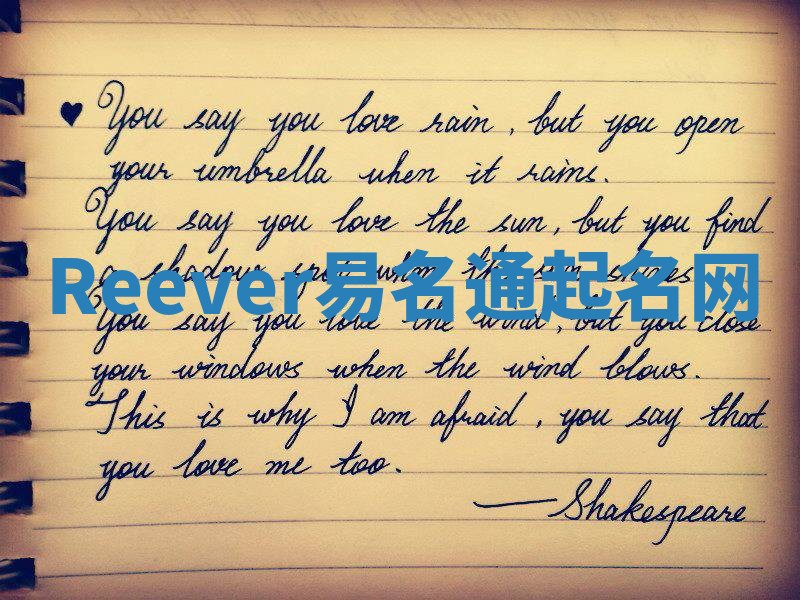 ♥ You say you love rain, but you open
your umbrella when it rains.
You say you love the sun, but you find
a shadow spot when the sun shines
Reever易名通起名网
You say you love the wind, but you close
your windows when the wind blows.
This is why I am afraid, you say that
you love me too.
—Shakespeare